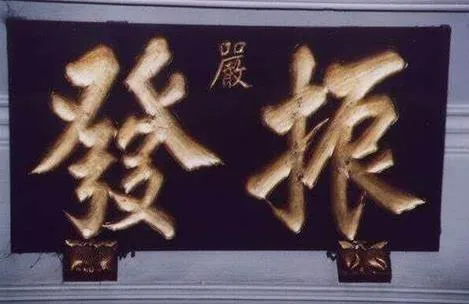 嚴
振發